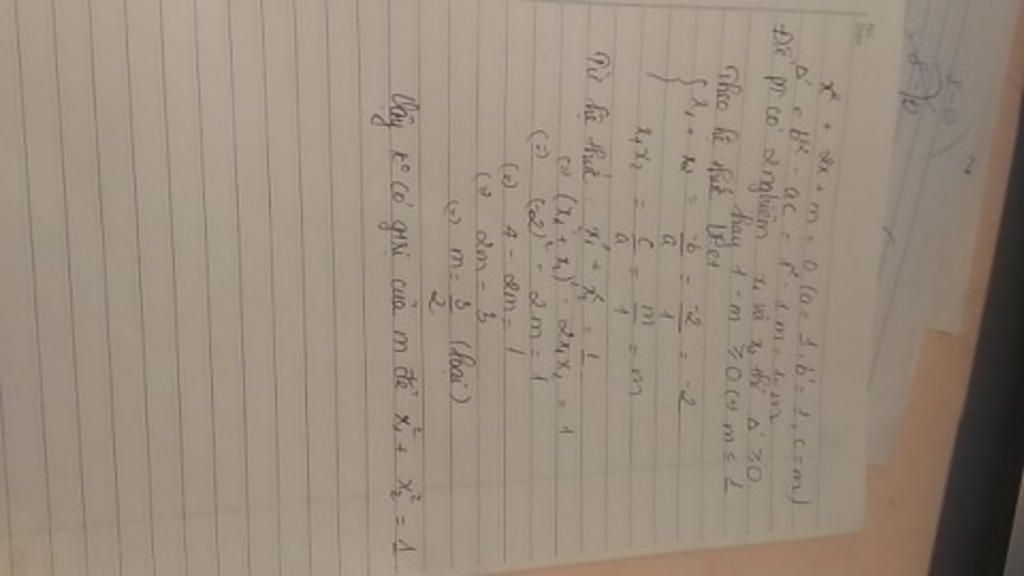 x² + 2x + m = 0 (a = 1, b' = 1, c = m)
Δ' = b'² - ac = 1² - 1.m = 1-m
Để pt có 2 nghiệm x₁ và x₂ thì Δ' ≥ 0
hay 1 - m ≥ 0 (=) m ≤ 1
Theo hệ thức
{ x₁ + x₂ = -b/a = -2/1 = -2
x₁x₂ = c/a = m/1 = m
Từ hệ thức x₁² + x₂² = 1
(=) (x₁ + x₂)² - 2x₁x₂ = 1
(=) (-2)² - 2m = 1
(=) 4 - 2m = 1
(=) 2m = 3
(=) m = 3/2 (loại)
Vậy k° có giá trị của m để x₁² + x₂² = 1